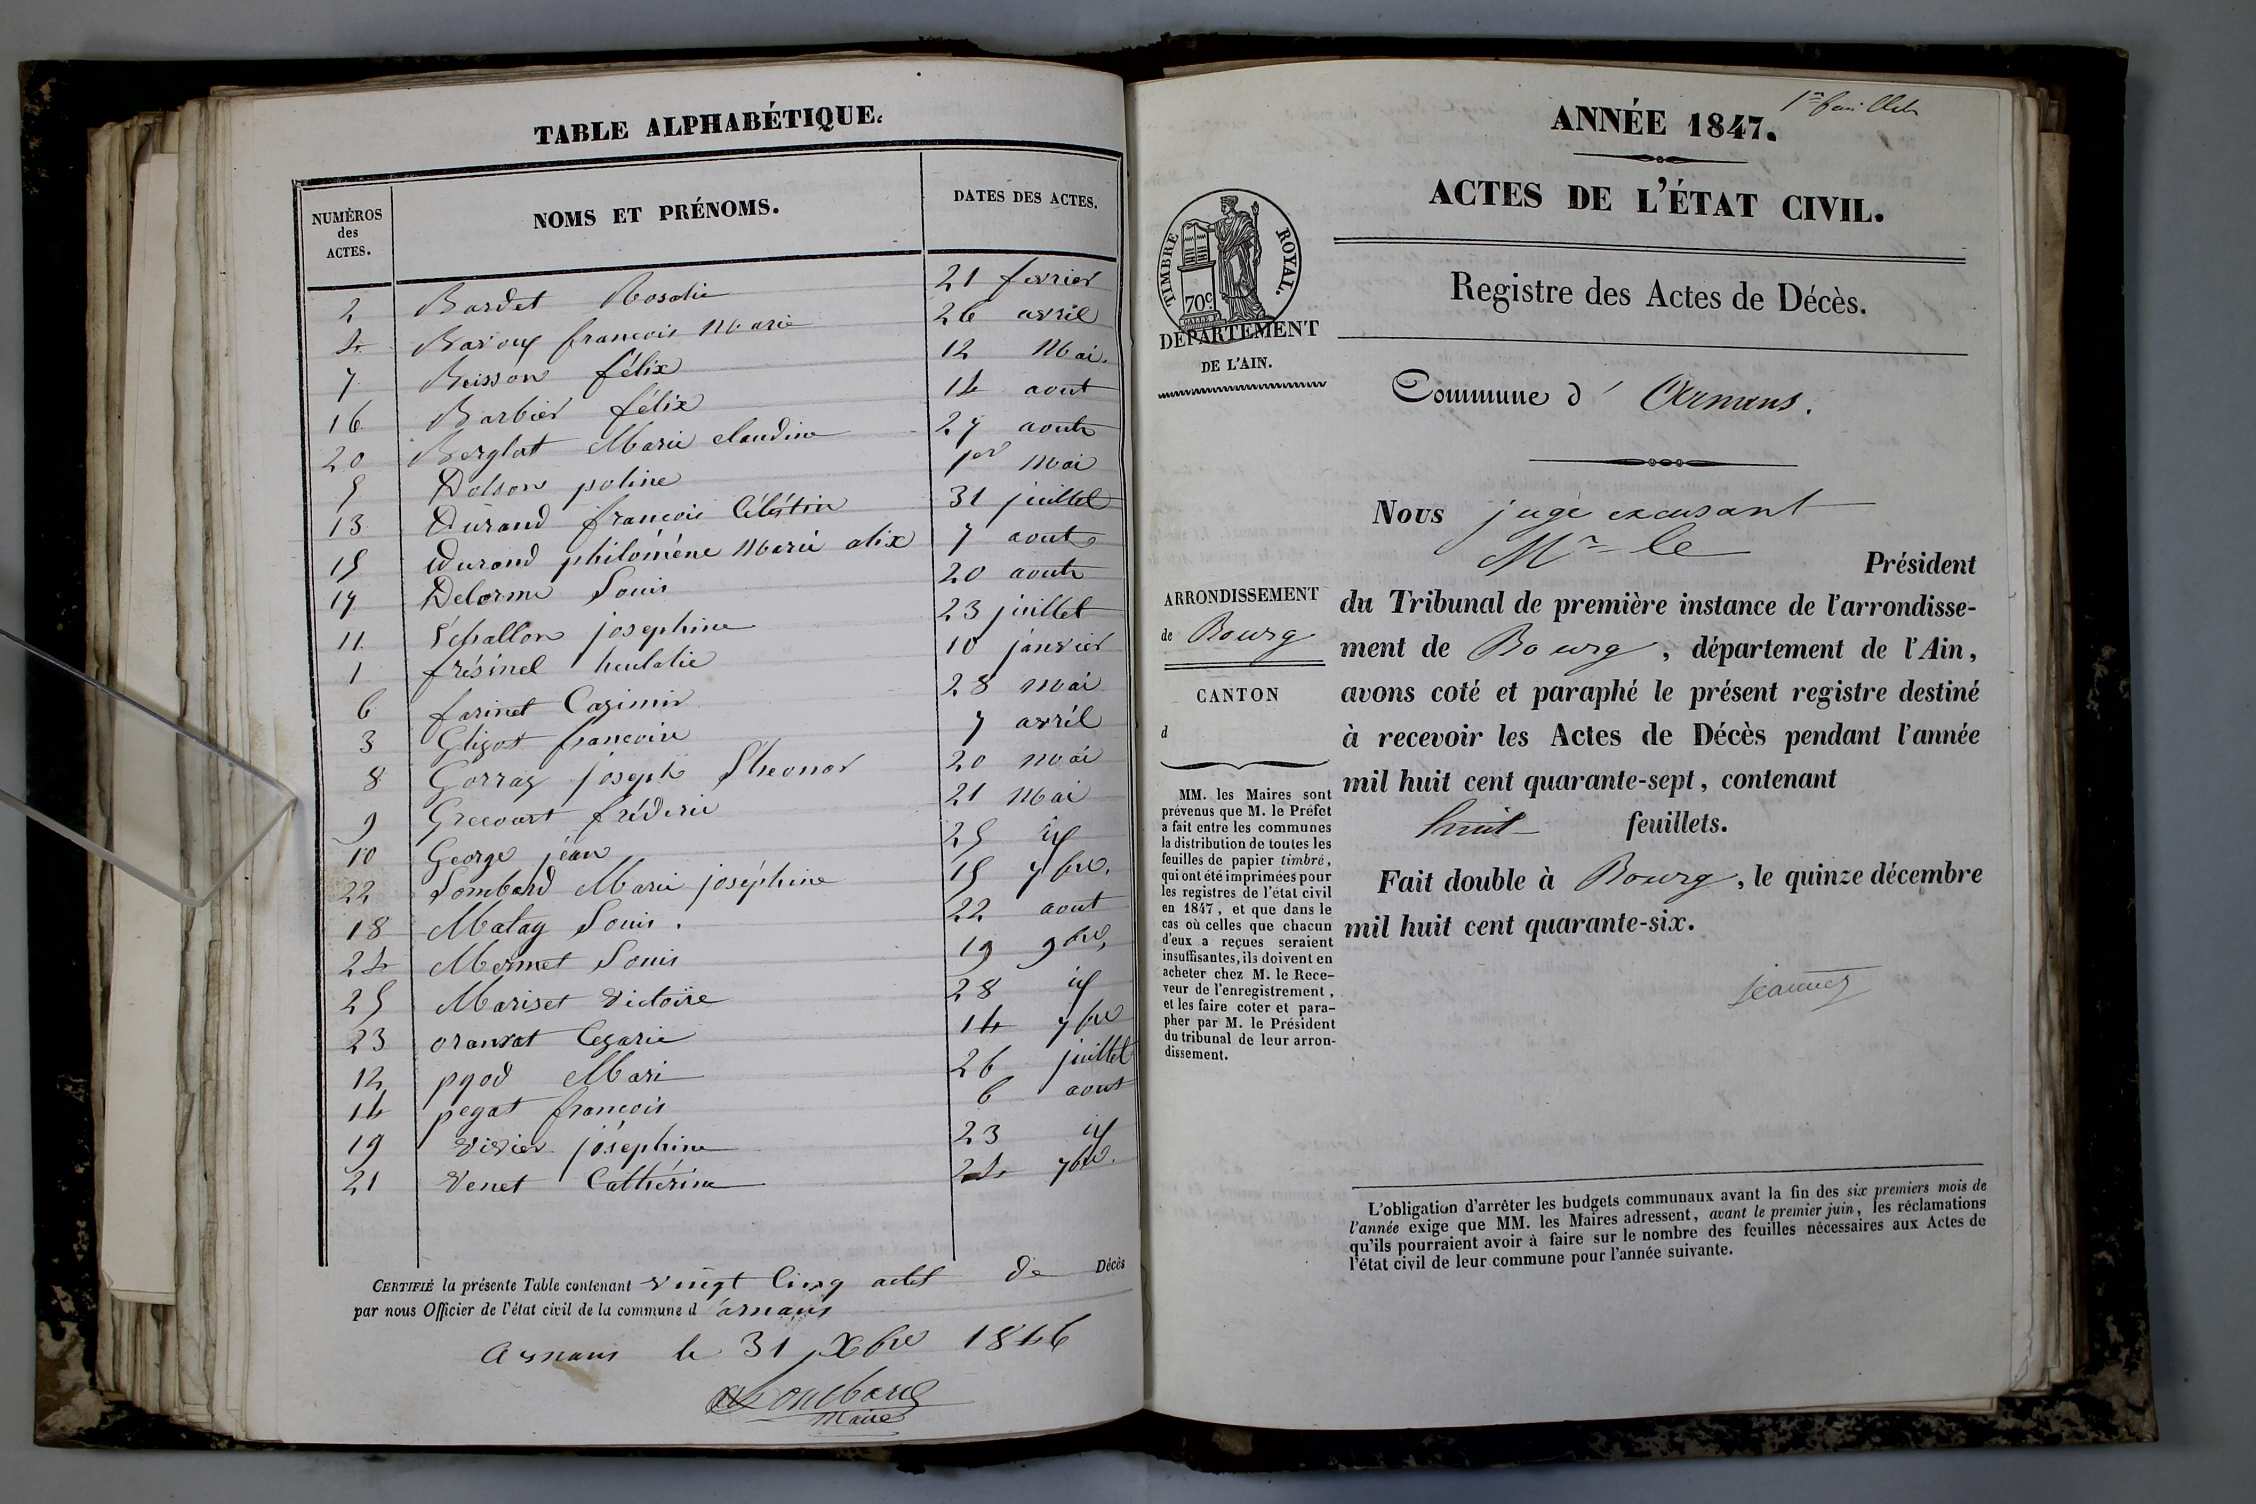 TABLE ALPHABÉTIQUE.
NUMÉROS des ACTES.
NOMS ET PRÉNOMS.
DATES DES ACTES.
2 Bardet Rosalie 21 fevrier
4 Baroux francois Marie 26 avril
7 Beisson félix 12 Mai.
16 Barbier félix 14 aout
20 Berglat Marie claudine 27 aout
5 Dolson poline 1er mai
13 Durand francois Céléstin 31 juillet
15 Durand philoméne Marie alix 7 aout
17 Delorme Louis 20 aout
11 Echallon josephine 23 juillet
1 frésinel heulalie 10 janvier
6 farinet Casimir 28 mai
3 Gligot francoise 7 avril
8 Gorraz joseph 20 mai
9 Grecourt fréderic 21 Mai
10 George jéan 25 id
22 Lombard Marie joséphine 15 7bre.
18 Malay Louis. 22 aout
24 Mermet Louis 19 9bre,
25 Mariset Victoire 28 id
23 Cezarie 14 7bre
12 pyod Mari 26 juillet
14 pegat francois 6 aout
19 vivier joséphine 23 id
21 Venet Cathérine 24 7bre.
CERTIFIÉ la présente Table contenant vingt Cinq actes de Décès
par nous Officier de l'état civil de la commune d'arnans
Arnans le 31 Xbre 1846
Lombard
Maire
1er feuillet
ANNÉE 1847.
ACTES DE L'ÉTAT CIVIL.
TIMBRE ROYAL.
70c
DÉPARTEMENT
DE L'AIN.
Registre des Actes de Décès.
Commune d'Arnans.
Nous juge excusant
Mr le Président
du Tribunal de première instance de l'arrondisse-
ment de Bourg, département de l'Ain,
avons coté et paraphé le présent registre destiné
à recevoir les Actes de Décès pendant l'année
mil huit cent quarante-sept, contenant
huit feuillets.
Fait double à Bourg, le quinze décembre
mil huit cent quarante-six.
ARRONDISSEMENT
de Bourg
CANTON
d
MM. les Maires sont
prévenus que M. le Préfet
a fait entre les communes
la distribution de toutes les
feuilles de papier timbré,
qui ont été imprimées pour
les registres de l'état civil
en 1847, et que dans le
cas où celles que chacun
d'eux a reçues seraient
insuffisantes, ils doivent en
acheter chez M. le Rece-
veur de l'enregistrement,
et les faire coter et para-
pher par M. le Président
du tribunal de leur arron-
dissement.
L'obligation d'arrêter les budgets communaux avant la fin des six premiers mois de
l'année exige que MM. les Maires adressent, avant le premier juin, les réclamations
qu'ils pourraient avoir à faire sur le nombre des feuilles nécessaires aux Actes de
l'état civil de leur commune pour l'année suivante.